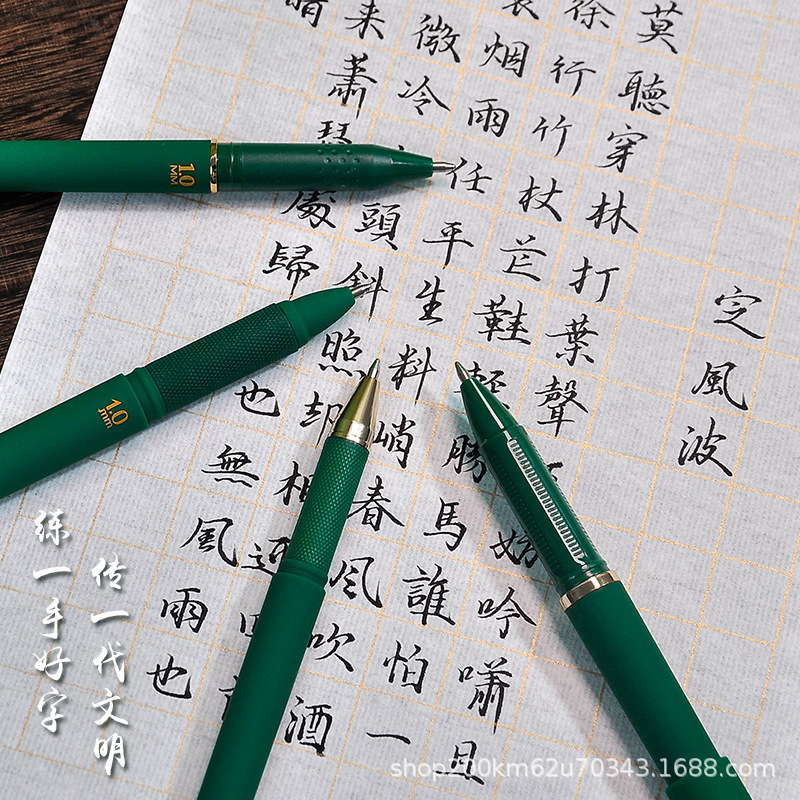 定風波
莫聽穿林打葉聲妨吟嘯且
徐行竹杖芒鞋輕勝馬誰怕一
蓑烟雨任平生料峭春風吹酒
微冷頭斜照却相迎回
來蕭瑟處歸也無風雨也
晴
1.0
MM
1.0
mm
练一手好字
传一代文明
shop200km62u70343.1688.com